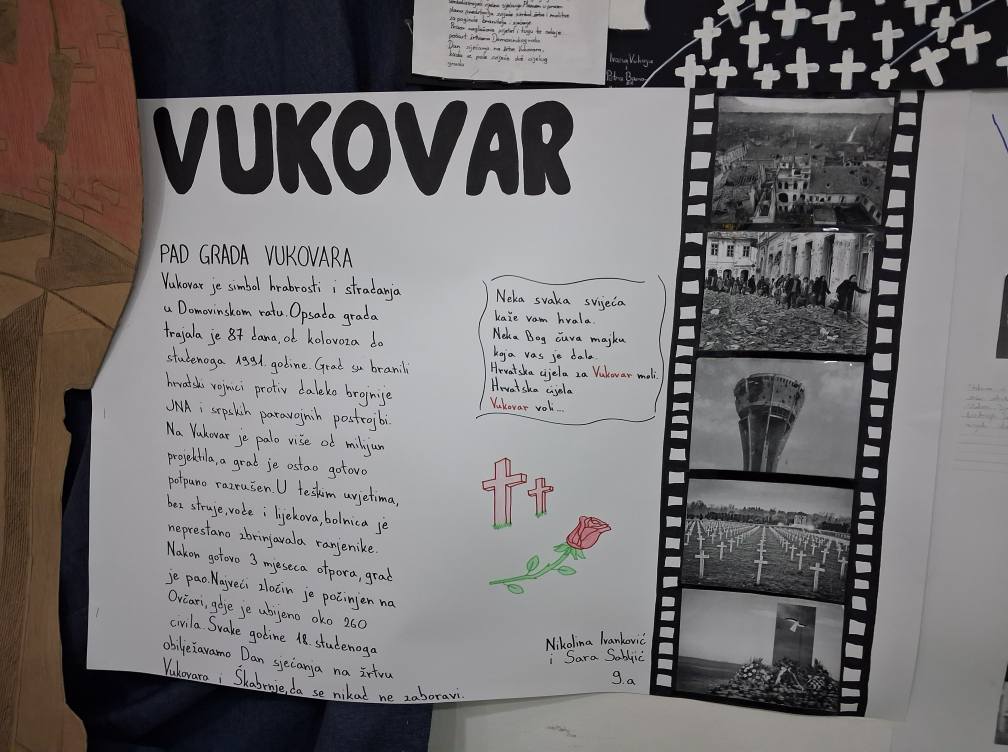 za poginule branitelje i
Dan sjećanja na žrtvu Vukovara,
grada
Ivana
Petra
VUKOVAR
PAD GRADA VUKOVARA
Vukovar je simbol hrabrosti i stradanja
u Domovinskom ratu. Opsada grada
trajala je 87 dana, od kolovoza do
studenoga 1991. godine. Grad su branili
hrvatski vojnici protiv daleko brojnije
JNA i srpskih paravojnih postrojbi.
Na Vukovar je palo više od milijun
projektila, a grad je ostao gotovo
potpuno razrušen. U teškim uvjetima,
bez struje, vode i lijekova, bolnica je
neprestano zbrinjavala ranjenike.
Nakon gotovo 3 mjeseca otpora, grad
je pao. Najveći zločin je počinjen na
Ovčari, gdje je ubijeno oko 260
civila. Svake godine 18. studenoga
obilježavamo Dan sjećanja na žrtvu
Vukovara i Škabrnje, da se nikad ne zaboravi.
Neka svaka svijeća
kaže vam hvala.
Neka Bog čuva majku
koja vas je dala.
Hrvatska cijela za Vukovar moli.
Hrvatska cijela
Vukovar voli...
Nikolina Ivanković
i Sara Sabljić
9.a